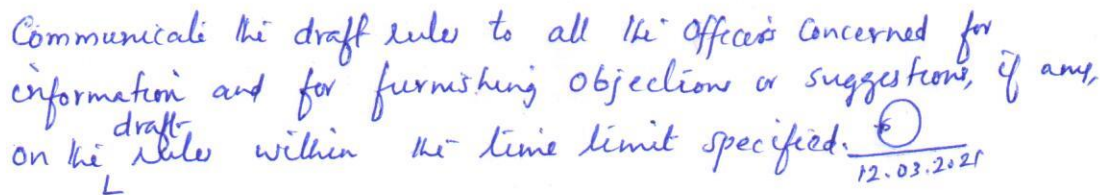 Communicate the draft rules to all the Officers concerned for
information and for furnishing objections or suggestions, if any,
on the draft rules within the time limit specified.
12.03.2021